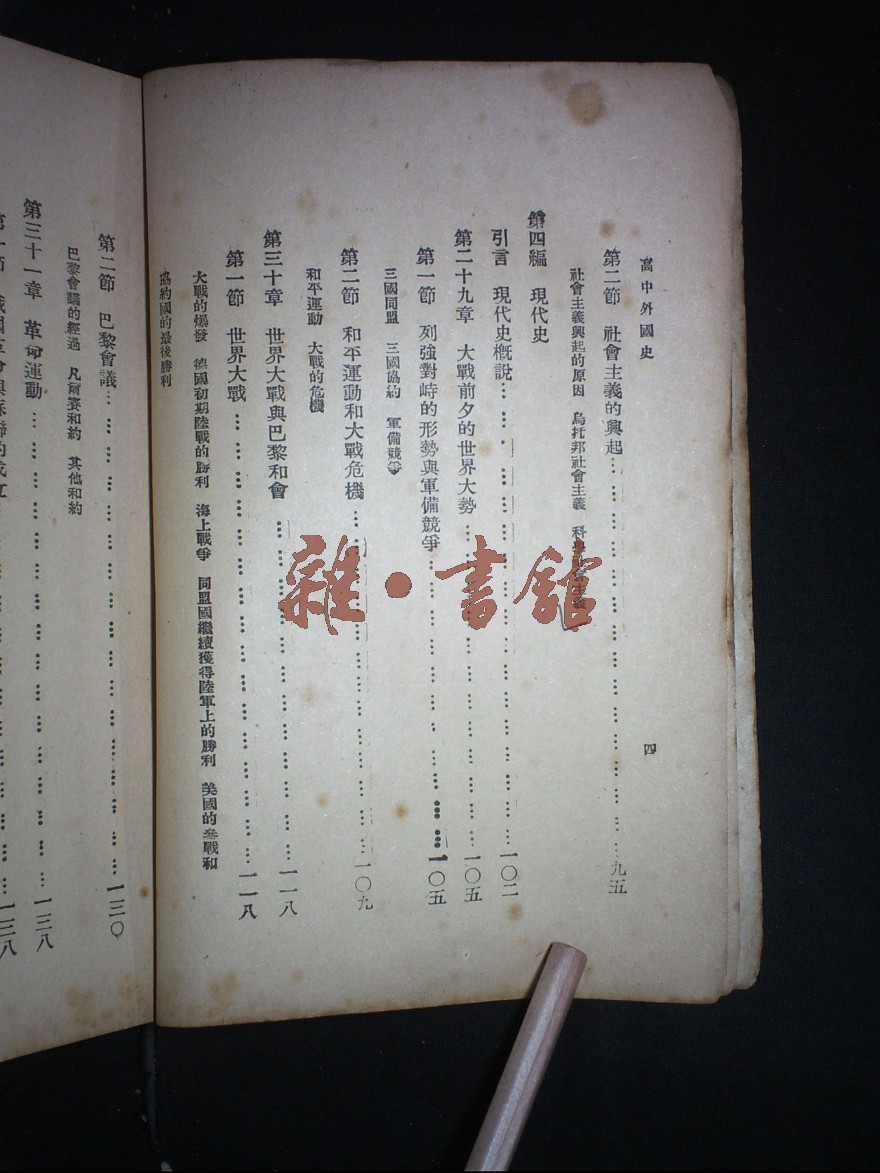 高中外國史
四
第二節 社會主義的興起………………………………九五
社會主義興起的原因 烏托邦社會主義 科學社會主義
第四編 現代史
引言 現代史概說………………………………一〇二
第二十九章 大戰前夕的世界大勢………………………………一〇五
第一節 列強對峙的形勢與軍備競爭………………………………一〇五
三國同盟 三國協約 軍備競爭
第二節 和平運動和大戰危機………………………………一〇九
和平運動 大戰的危機
第三十章 世界大戰與巴黎和會………………………………一一八
第一節 世界大戰………………………………一一八
大戰的爆發 德國初期陸戰的勝利 海上戰爭 同盟國繼續獲得陸軍上的勝利 美國的參戰和
協約國的最後勝利
第二節 巴黎會議………………………………一三〇
巴黎會議的經過 凡爾賽和約 其他和約
第三十一章 革命運動………………………………一三八
第一節 俄國革命與蘇聯的成立………………………………一三八
雜·書館